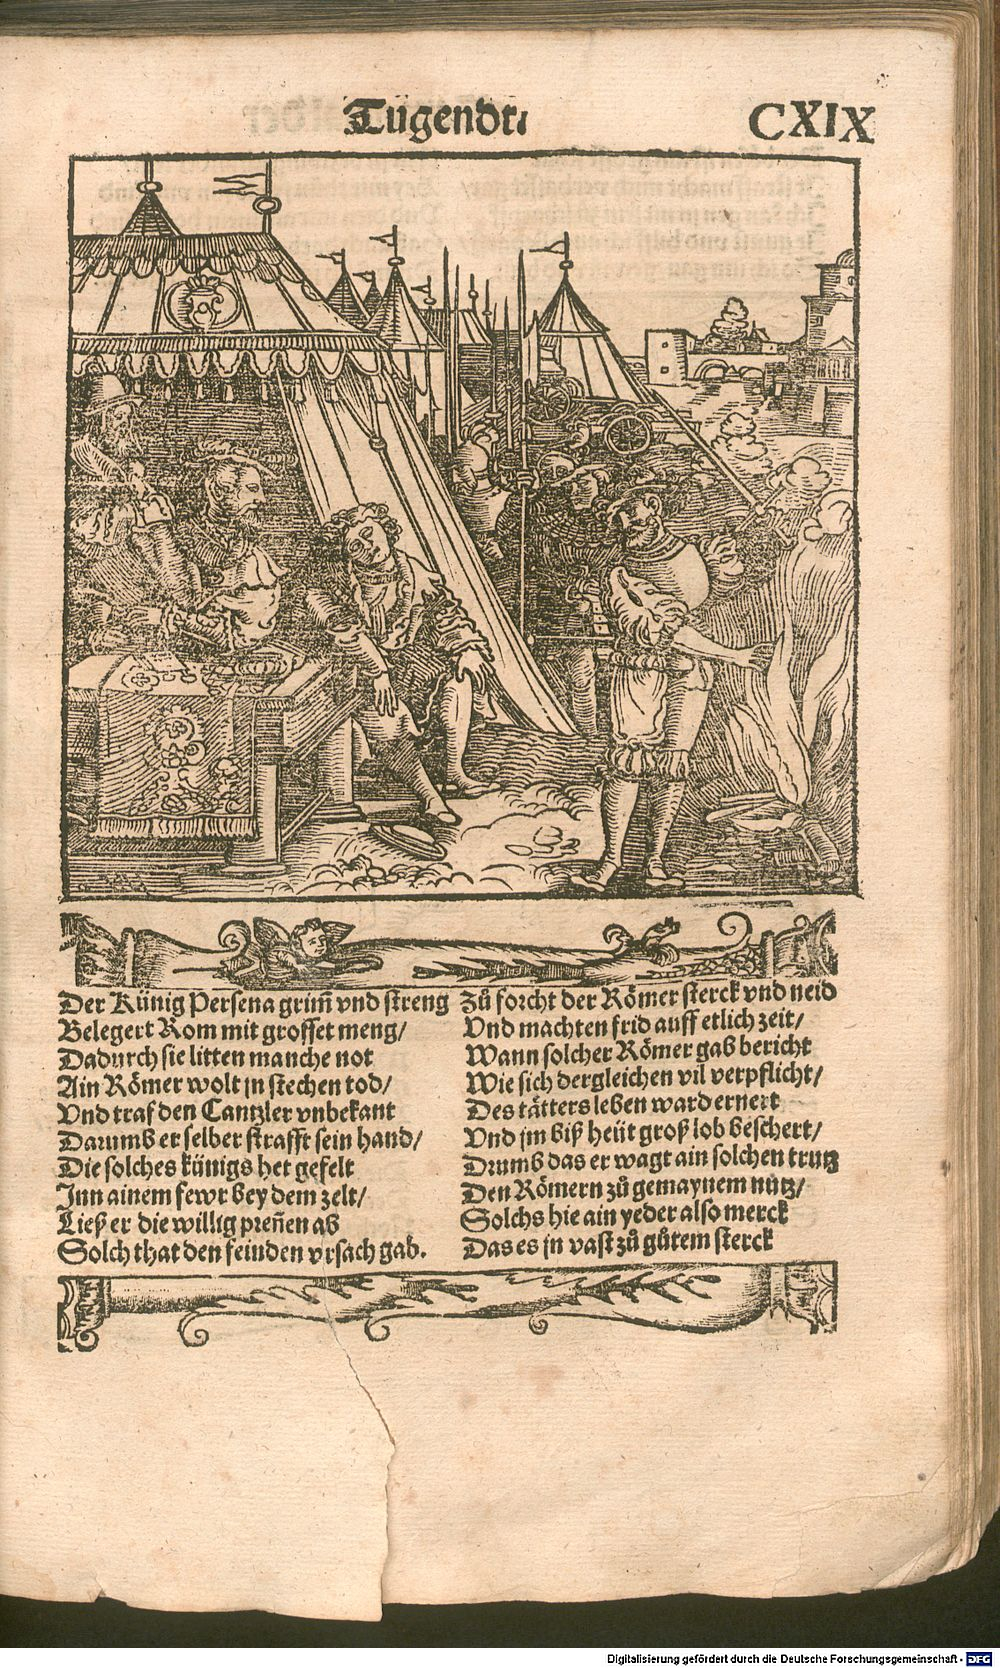 Tugendt.
CXIX
Der Künig Persena grim̃ vnd streng
Belegert Rom mit grosset meng/
Dadurch sie litten manche not
Ain Römer wolt jn stechen tod/
Vnd traf den Cantzler vnbekant
Darumb er selber strafft sein hand/
Die solches künigs het gefelt
Inn ainem fewr bey dem zelt/
Ließ er die willig preñen ab
Solch that den feinden vrsach gab.
Zů forcht der Römer sterck vnd neid
Vnd machten frid auff etlich zeit/
Wann solcher Römer gab bericht
Wie sich dergleichen vil verpflicht/
Des tätters leben ward ernert
Vnd jm biß heüt groß lob beschert/
Drumb das er wagt ain solchen trutz
Den Römern zů gemaynem nutz/
Solchs hie ain yeder also merck
Das es jn vast zů gůtem sterck
Digitalisierung gefördert durch die Deutsche Forschungsgemeinschaft - DFG